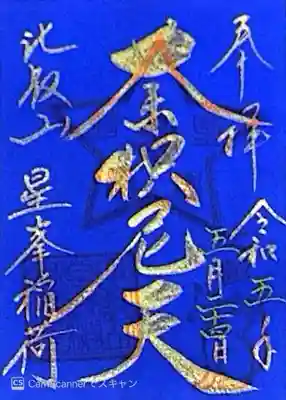 奉拝
令和五年
五月
荼枳尼天
比叡山
星峯稲荷
CS CamScanner でスキャン